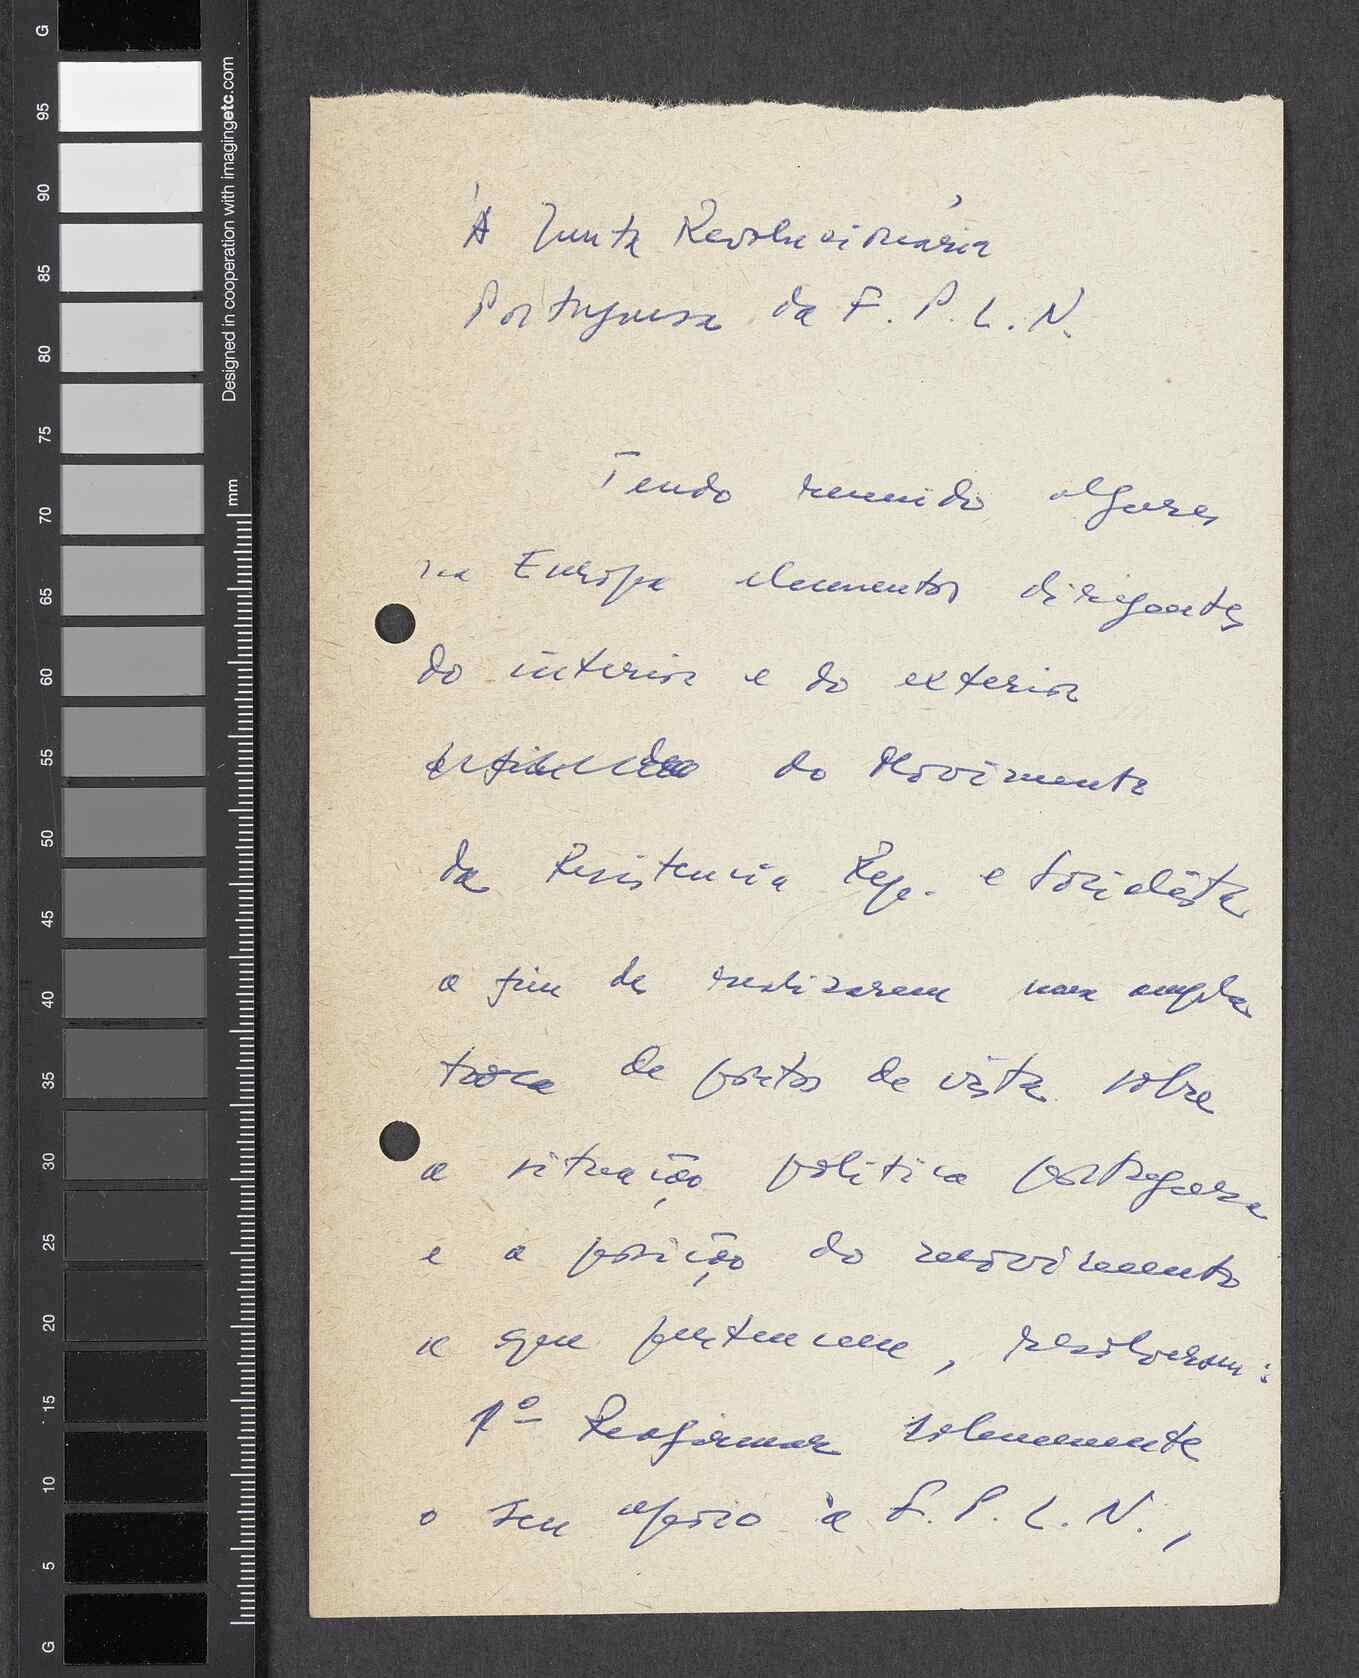 À Junta Revolucionária
Portuguesa da F. P. L. N.
Tendo reunido algures
na Europa elementos dirigentes
do interior e do exterior
do Movimento
da Resistencia Rep. e Socialista
a fim de realizarem uma ampla
troca de pontos de vista sobre
a situação politica portuguesa
e a posição do movimento
a que pertencem, resolveram:
1º Reafirmar solenemente
o seu apoio à F. P. L. N.,
G
95
90
85
80
75
70
65
60
55
50
45
40
35
30
25
20
15
10
5
G
Designed in cooperation with imagingetc.com
mm